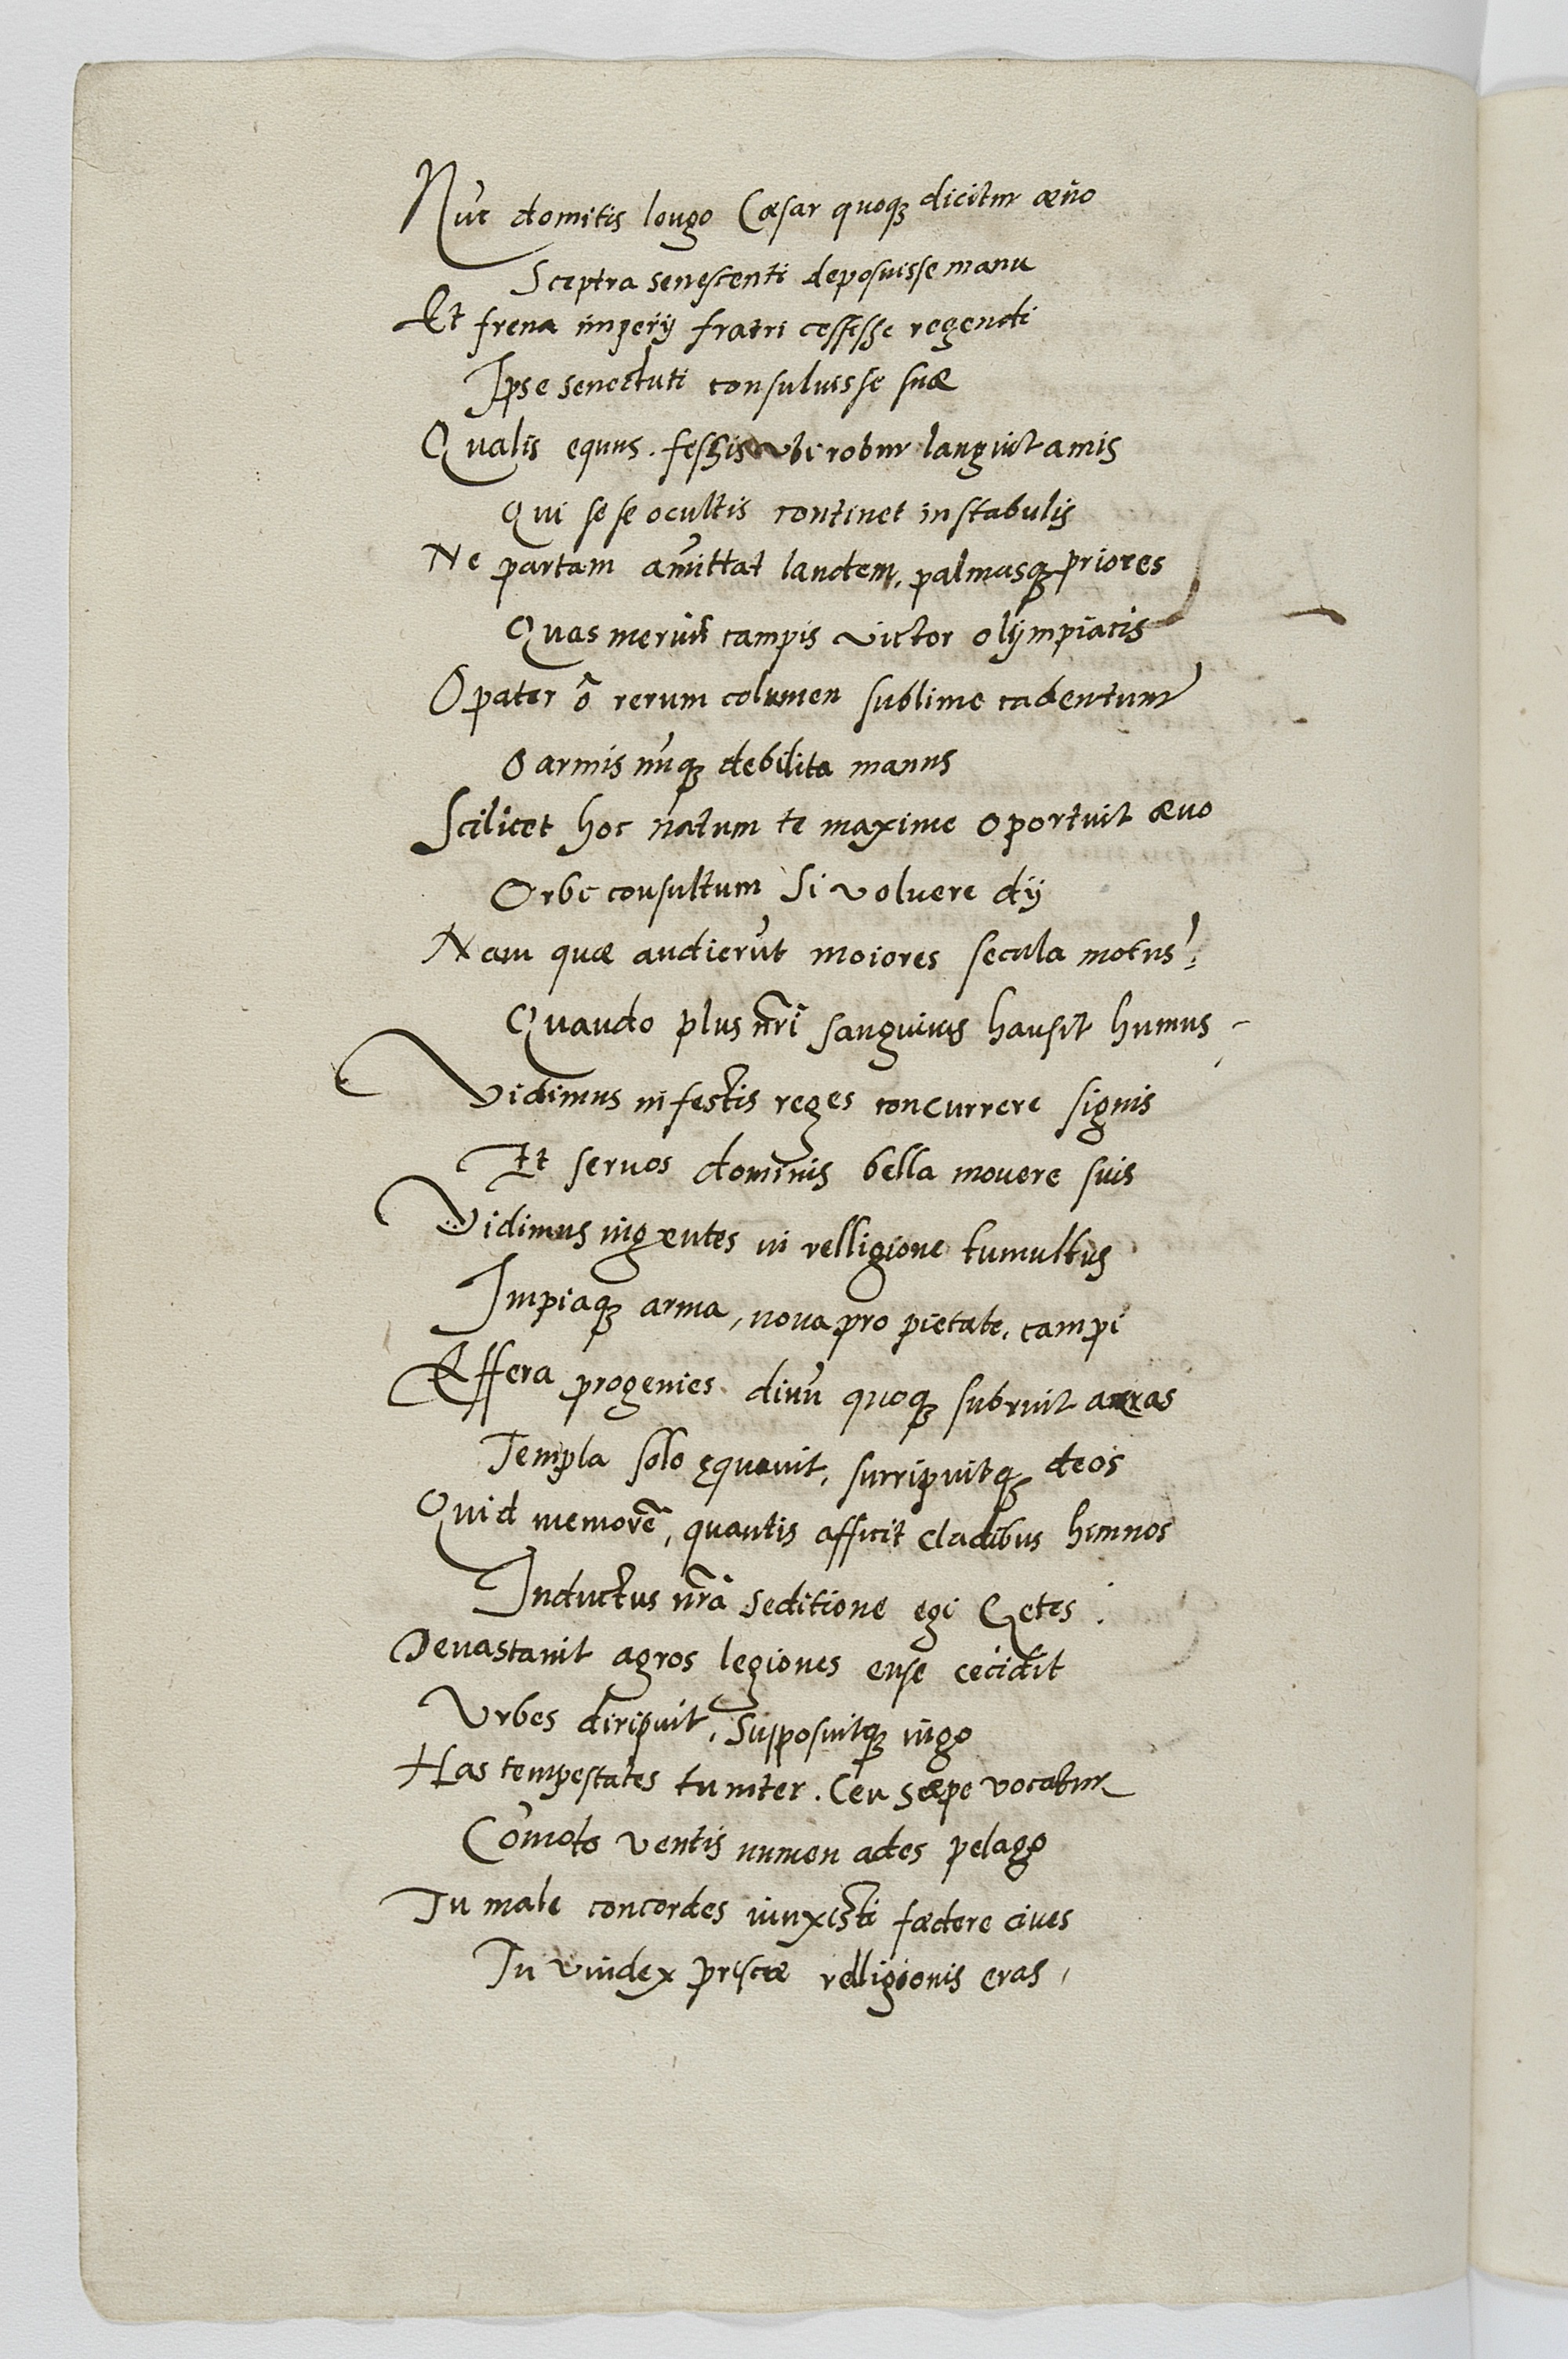 Nūc domitis longo Cæsar quoqȝ dicitur æuo
Sceptra senescenti deposuisse manu
Et frena imperij fratri cessisse regendi
Ipse senectuti consuluisse suæ
Qualis equus . fessis vbi robur languit amis
Qui sese ocultis continet in stabulis
Ne partam amittat laudem, palmasqȝ priores
Quas meruit campis victor olijmpiacis
O pater ô rerum columen sublime cadentum
O armis nūqȝ debilita manus
Scilicet hoc natum te maxime oportuit æuo
Orbe consultum Si voluere dij
Nam quæ audierūt maiores secula motus?
Quando plus nr̄i sanguinis hausit humus
Vidimus infestis reges concurrere signis
Et seruos dominis bella mouere suis
Vidimus ingentes in relligione tumultus
Impiaqȝ arma, noua pro pietate, campi
Effera progenies diuū quoqȝ subruit aras
Templa solo ęquauit, surripuitqȝ deos
Quid memorē, quantis afficit cladibus himnos
Inductus nr̄a seditione egi Getes .
Deuastauit agros legiones ense cecidit
Vrbes diripuit, Supposuitqȝ iugo
Has tempestates tu inter . Ceu sæpe vocatur
Cōmoto ventis numen ades pelago
Tu male concordes iunxisti fædere ciues
Tu vindex priscæ relligionis eras,